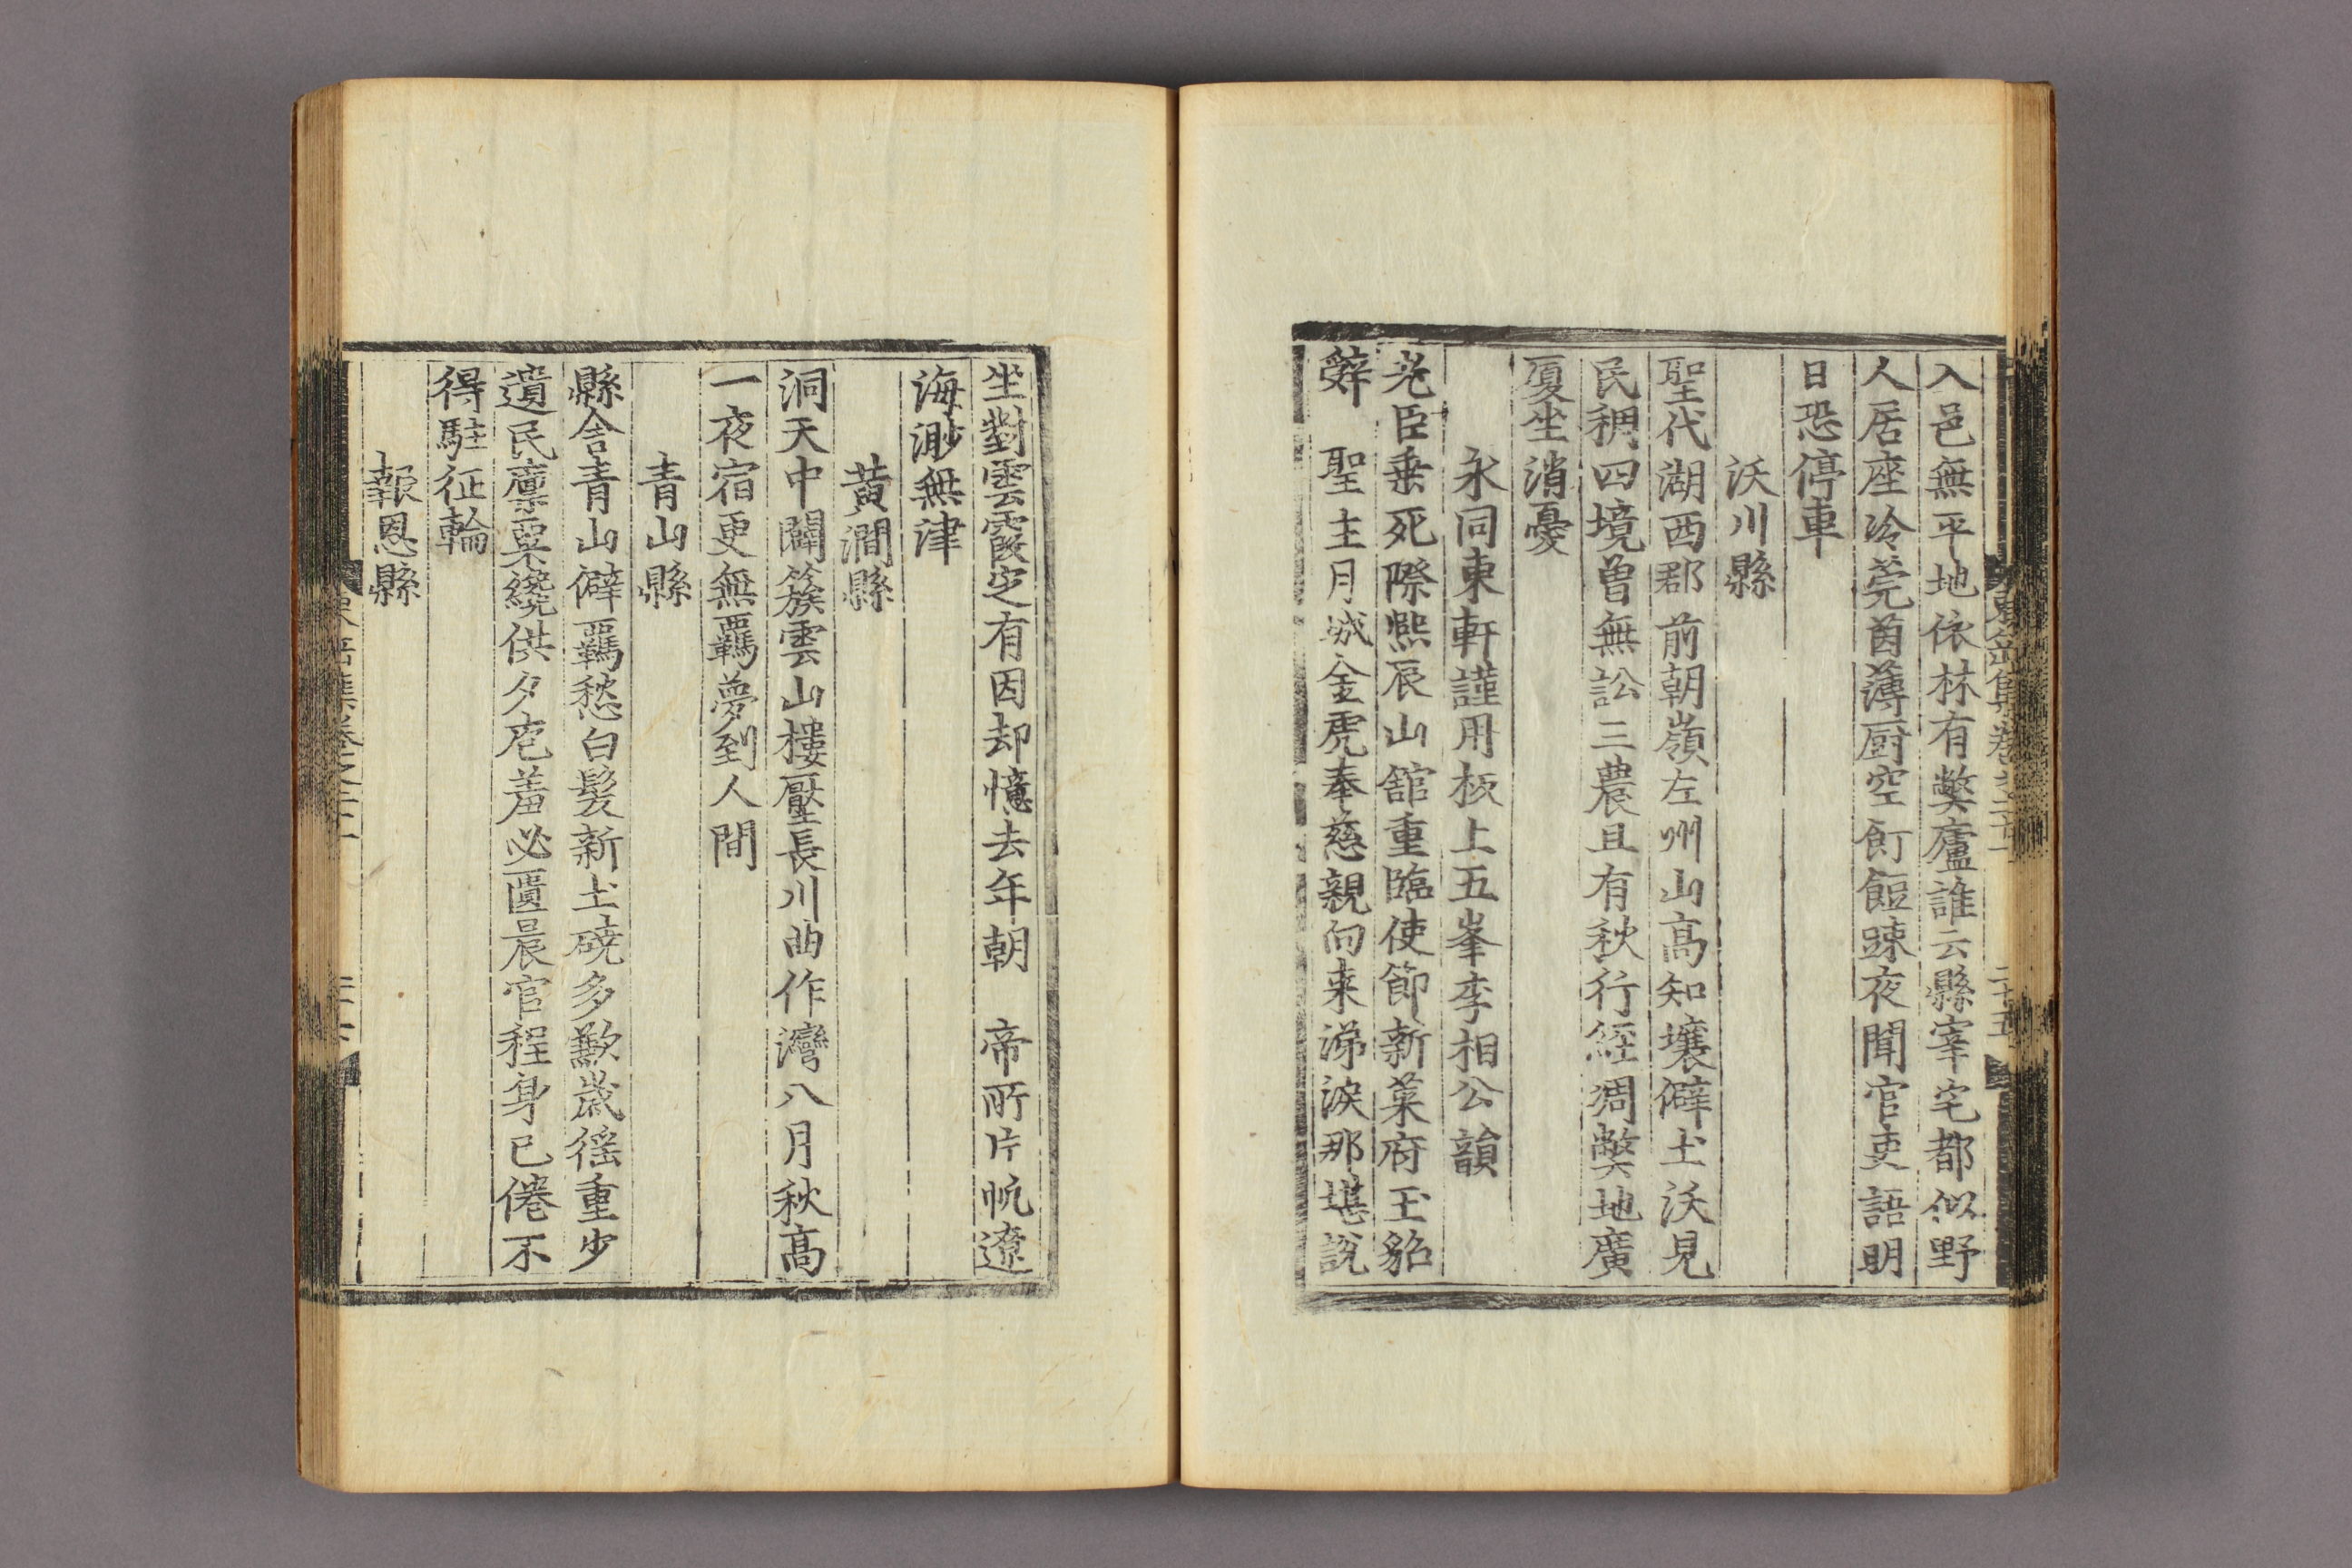 入邑無平地依林有弊廬誰云縣宰宅都似野
人居座冷莞茵薄厨空飣餖踈夜聞官吏語明
日恐停車
沃川縣
聖代湖西郡前朝嶺左州山高知壤僻土沃見
民稠四境曾無訟三農且有秋行經凋弊地廣
厦坐消憂
永同東軒謹用板上五峯李相公韻
老臣垂死際熈辰山舘重臨使節新菓府玉貂
辭 聖主月城金虎奉慈親向来涕淚那堪說
坐對雲霞定有因却憶去年朝 帝所片帆遼
海渺無津
黃澗縣
洞天中闢簇雲山樓壓長川曲作灣八月秋高
一夜宿更無羈夢到人間
青山縣
縣舎青山僻羈愁白髮新土磽多歉歲徭重少
遺民廩粟纔供夕庖羞必匱晨官程身已倦不
得駐征輪
報恩縣